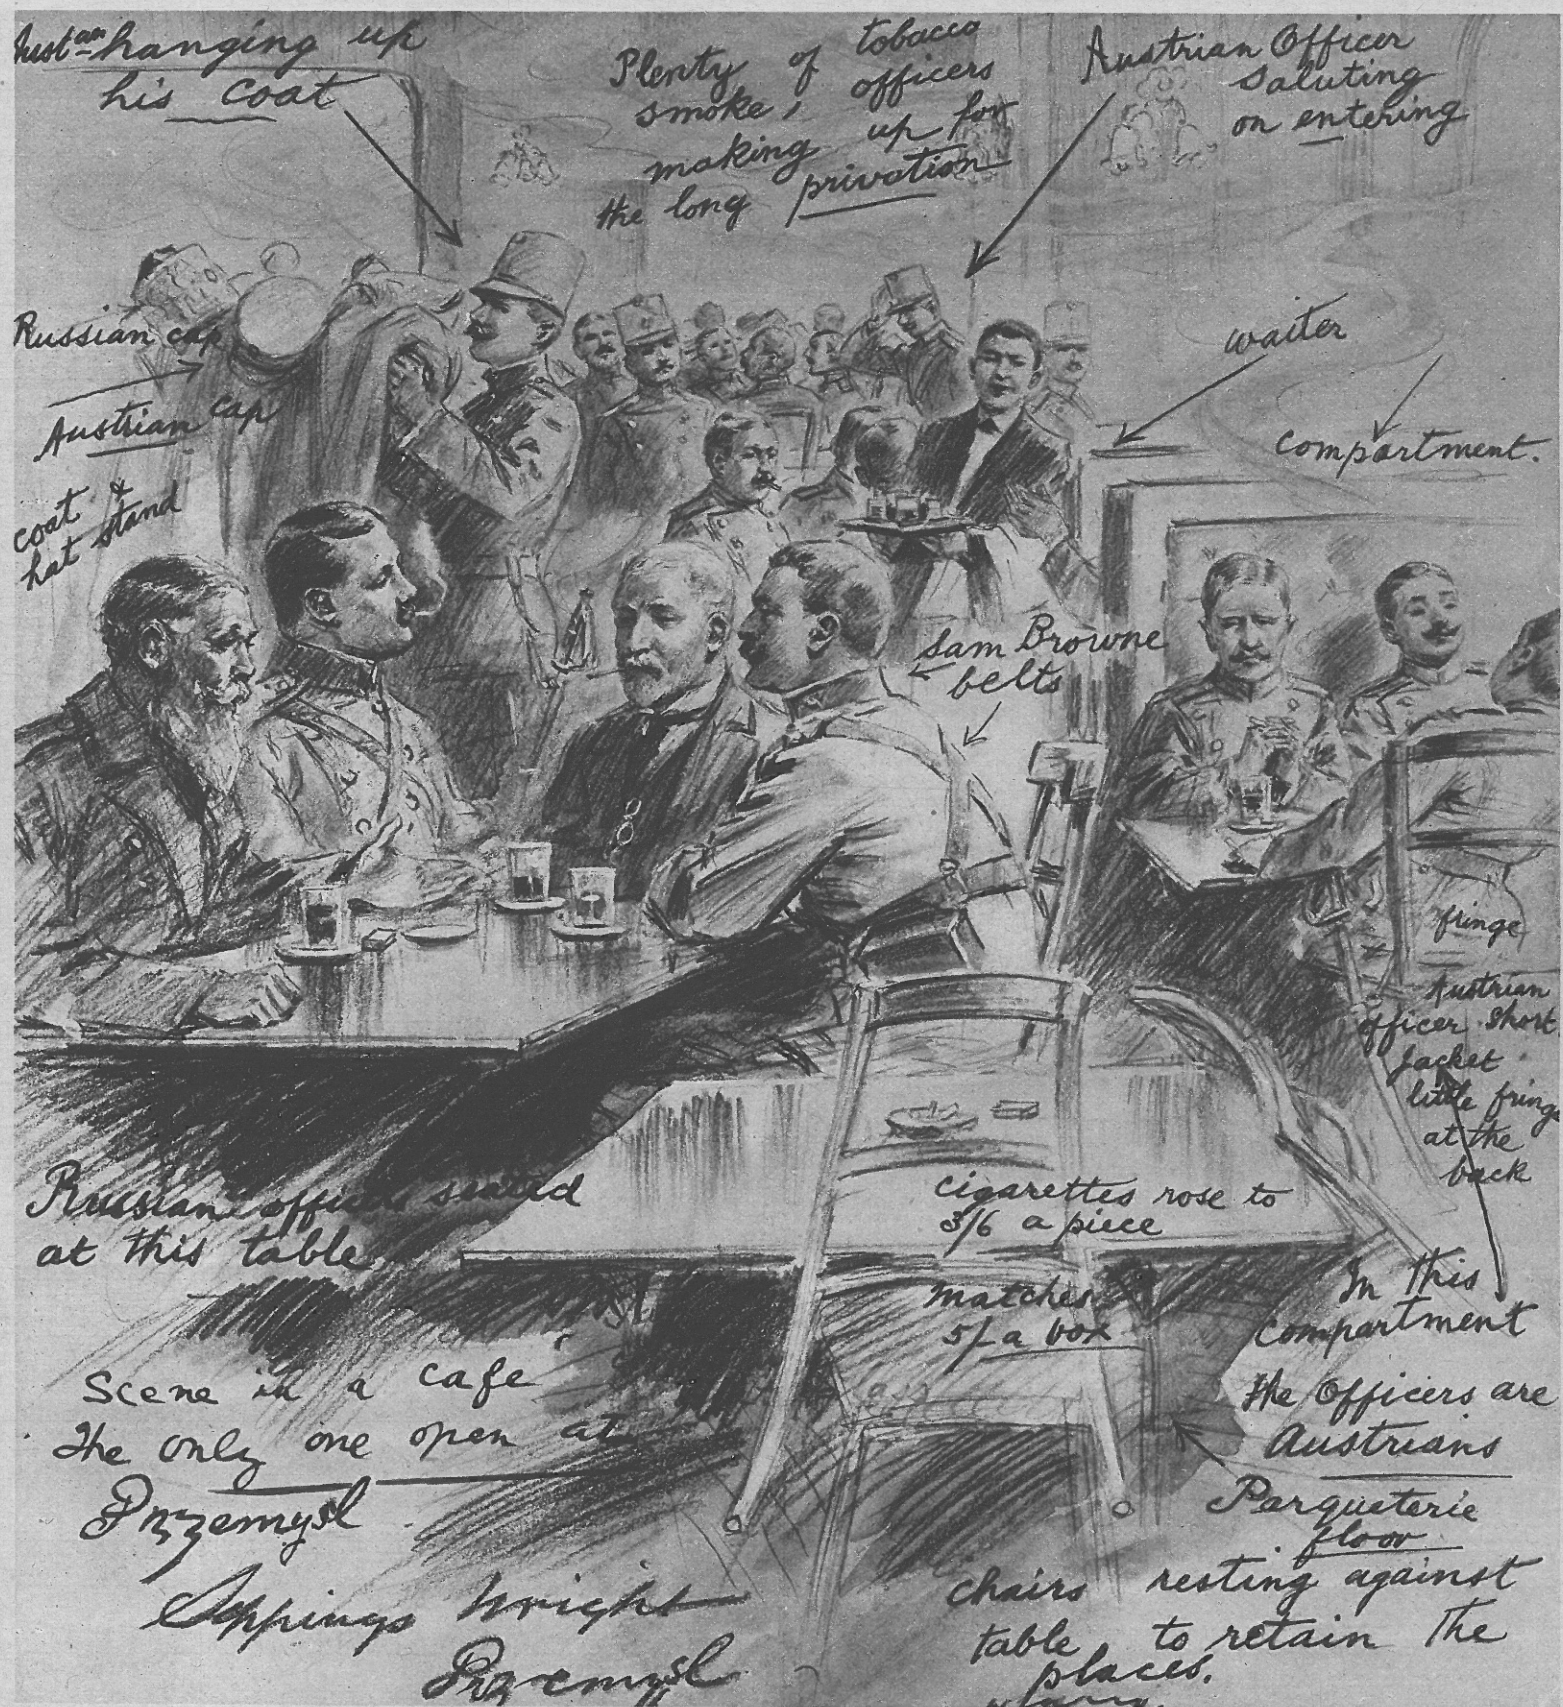 Austan hanging up
his coat
Plenty of tobacco
smoke, officers
making up for
the long privation
Austrian Officer
saluting
on entering
Russian cap
Austrian cap
coat &
hat stand
waiter
compartment.
Sam Browne
belts
fringe
Austrian
officer short
jacket
little fringe
at the
back
Russian officers seated
at this table
cigarettes rose to
3/6 a piece
matches
5/- a box
In this
compartment
the Officers are
Austrians
Scene in a cafe
The only one open at
Przemysl
Parqueterie
floor
Seppings Wright
Przemysl
chairs resting against
table, to retain the
places.